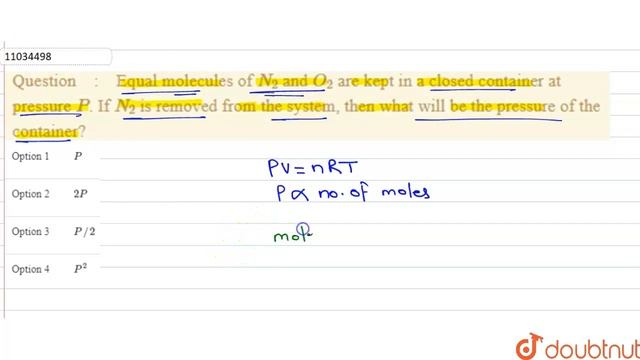 11034498
Question : Equal molecules of N₂ and O₂ are kept in a closed container at
pressure P. If N₂ is removed from the system, then what will be the pressure of the
container?
Option 1 P
PV=nRT
Option 2 2P
P∝ no. of moles
Option 3 P/2
mol
Option 4 P²
doubtnut